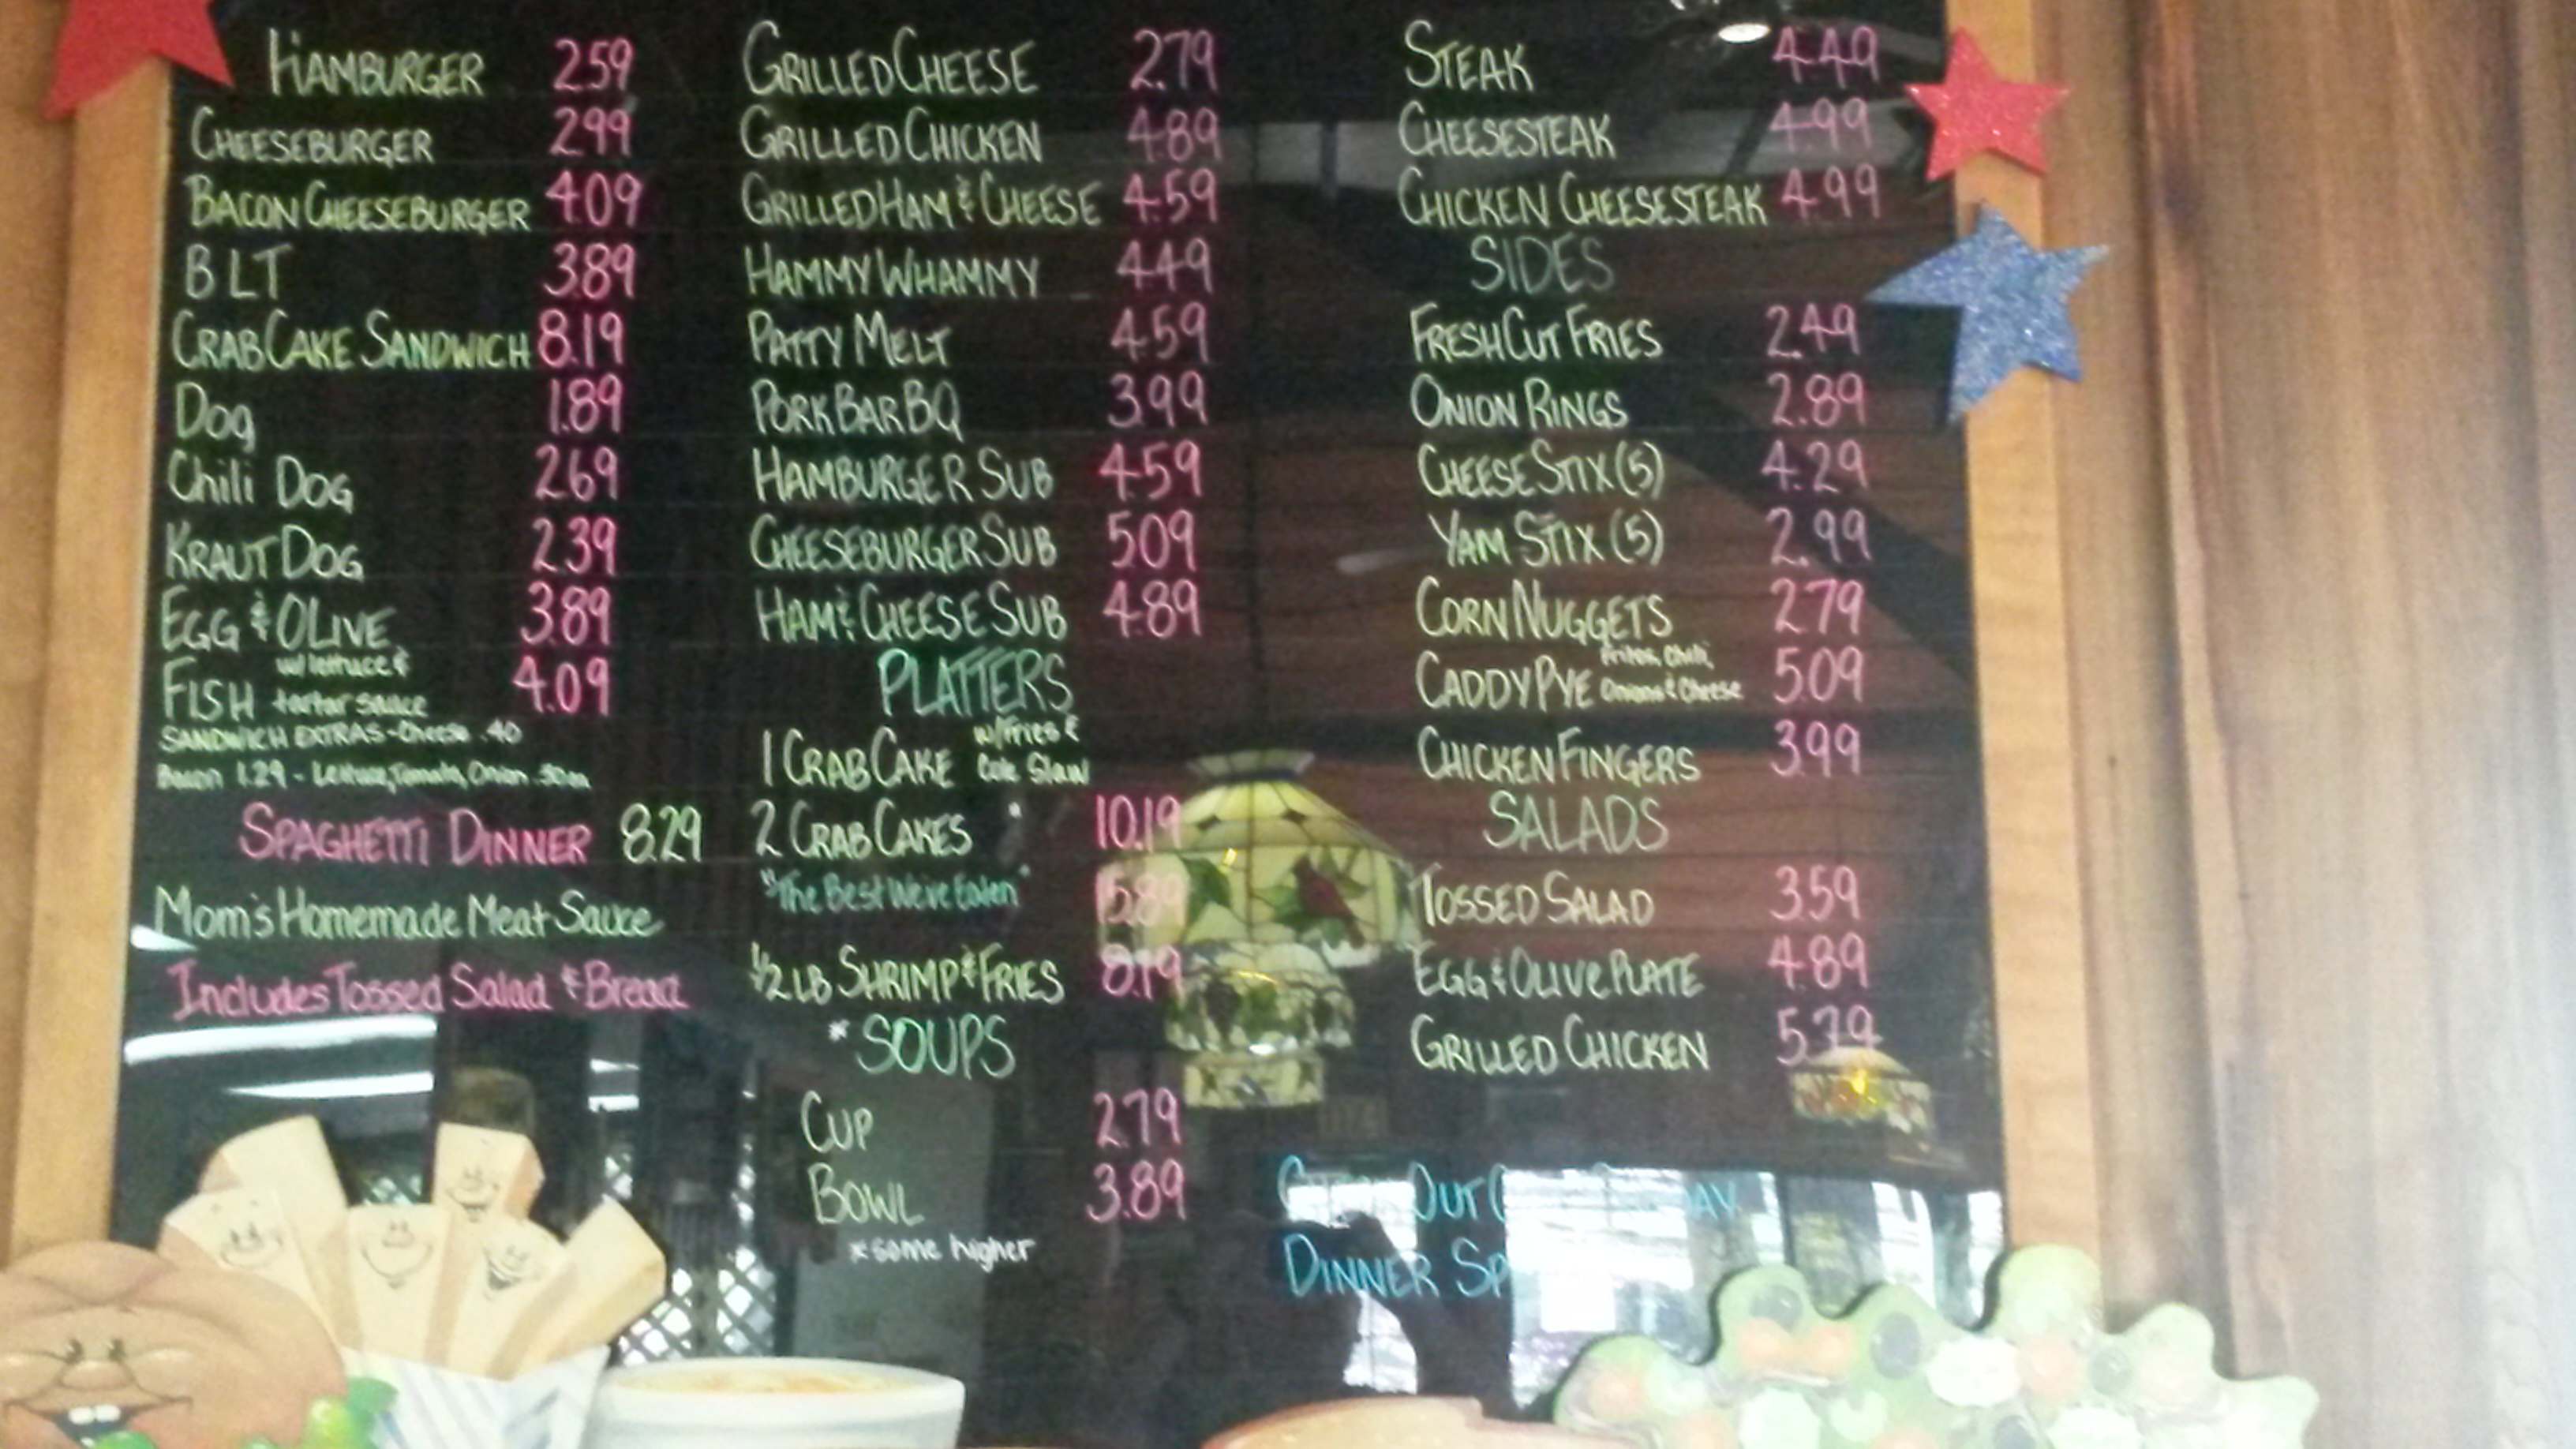 HAMBURGER 2.59
CHEESEBURGER 2.99
BACON CHEESEBURGER 4.09
BLT 3.89
CRAB CAKE SANDWICH 8.19
DOG 1.89
Chili DOG 2.69
KRAUT DOG 2.39
EGG & OLIVE 3.89
w/ lettuce &
FISH tartar sauce 4.09
SANDWICH EXTRAS - Cheese .40
Bacon 1.29 - Lettuce, Tomato, Onion .30ea
SPAGHETTI DINNER 8.29
Mom's Homemade Meat Sauce
Includes Tossed Salad & Bread
GRILLED CHEESE 2.79
GRILLED CHICKEN 4.89
GRILLED HAM & CHEESE 4.59
HAMMY WHAMMY 4.49
PATTY MELT 4.59
PORK BAR BQ 3.99
HAMBURGER SUB 4.59
CHEESEBURGER SUB 5.09
HAM & CHEESE SUB 4.89
PLATTERS
w/Fries &
1 CRAB CAKE Cole Slaw
2 CRAB CAKES " 10.19
"The Best We've Eaten" 15.89
1/2 LB SHRIMP & FRIES 8.19
* SOUPS
CUP 2.79
BOWL 3.89
*some higher
STEAK 4.49
CHEESESTEAK 4.99
CHICKEN CHEESESTEAK 4.99
SIDES
FRESH CUT FRIES 2.49
ONION RINGS 2.89
CHEESE STIX (5) 4.29
YAM STIX (5) 2.99
CORN NUGGETS 2.79
Fritos, Chili,
CADDY PYE Onions & Cheese 5.09
CHICKEN FINGERS 3.99
SALADS
TOSSED SALAD 3.59
EGG & OLIVE PLATE 4.89
GRILLED CHICKEN 5.79
OUT
DINNER